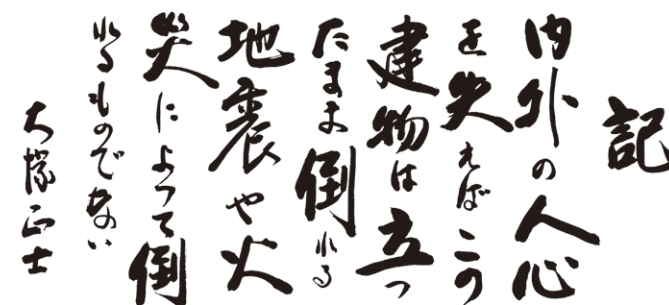 記
内外の人心
を失えばこの
建物は立つ
たまま倒れる
地震や火
災によって倒
れるものでない
大塚正士